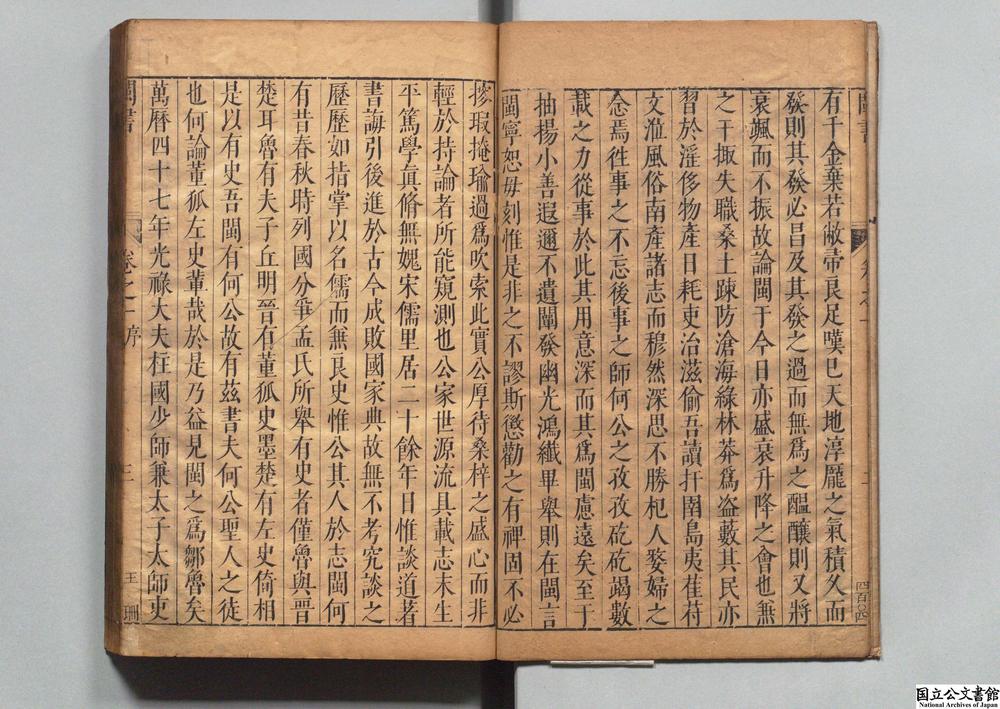 有千金棄若敝帚良足嘆已天地淳龐之氣積久而
發則其發必昌及其發之過而無爲之醞釀則又將
衰颯而不振故論閩于今日亦盛衰升降之會也無
之干掫失職桑土踈防滄海綠林莽爲盗藪其民亦
習於淫侈物產日耗吏治滋偷吾讀扞圉島夷萑苻
文涖風俗南產諸志而穆然深思不勝杞人婺婦之
念焉徃事之不忘後事之師何公之孜孜矻矻蹋數
載之力從事於此其用意深而其爲閩慮遠矣至于
抽揚小善遐邇不遺闡發幽光鴻纎畢舉則在閩言
閩寧恕毋刻惟是非之不謬斯懲勸之有裨固不必
四百〇四
摉瑕掩瑜過爲吹索此實公厚待桑梓之盛心而非
輕於持論者所能窺測也公家世源流具載志末生
平篤學眞脩無媿宋儒里居二十餘年日惟談道著
書誨引後進於古今成敗國家典故無不考究談之
歷歷如指掌以名儒而無良史惟公其人於志閩何
有昔春秋時列國分爭孟氏所舉有史者僅魯與晋
楚耳魯有夫子丘明晉有董狐史墨楚有左史倚相
是以有史吾閩有何公故有茲書夫何公聖人之徒
也何論董狐左史董哉於是乃益見閩之爲鄒魯矣
萬曆四十七年光祿大夫柱國少師兼太子太師吏
閩書
卷之一序
三
王珊
国立公文書館
National Archives of Japan